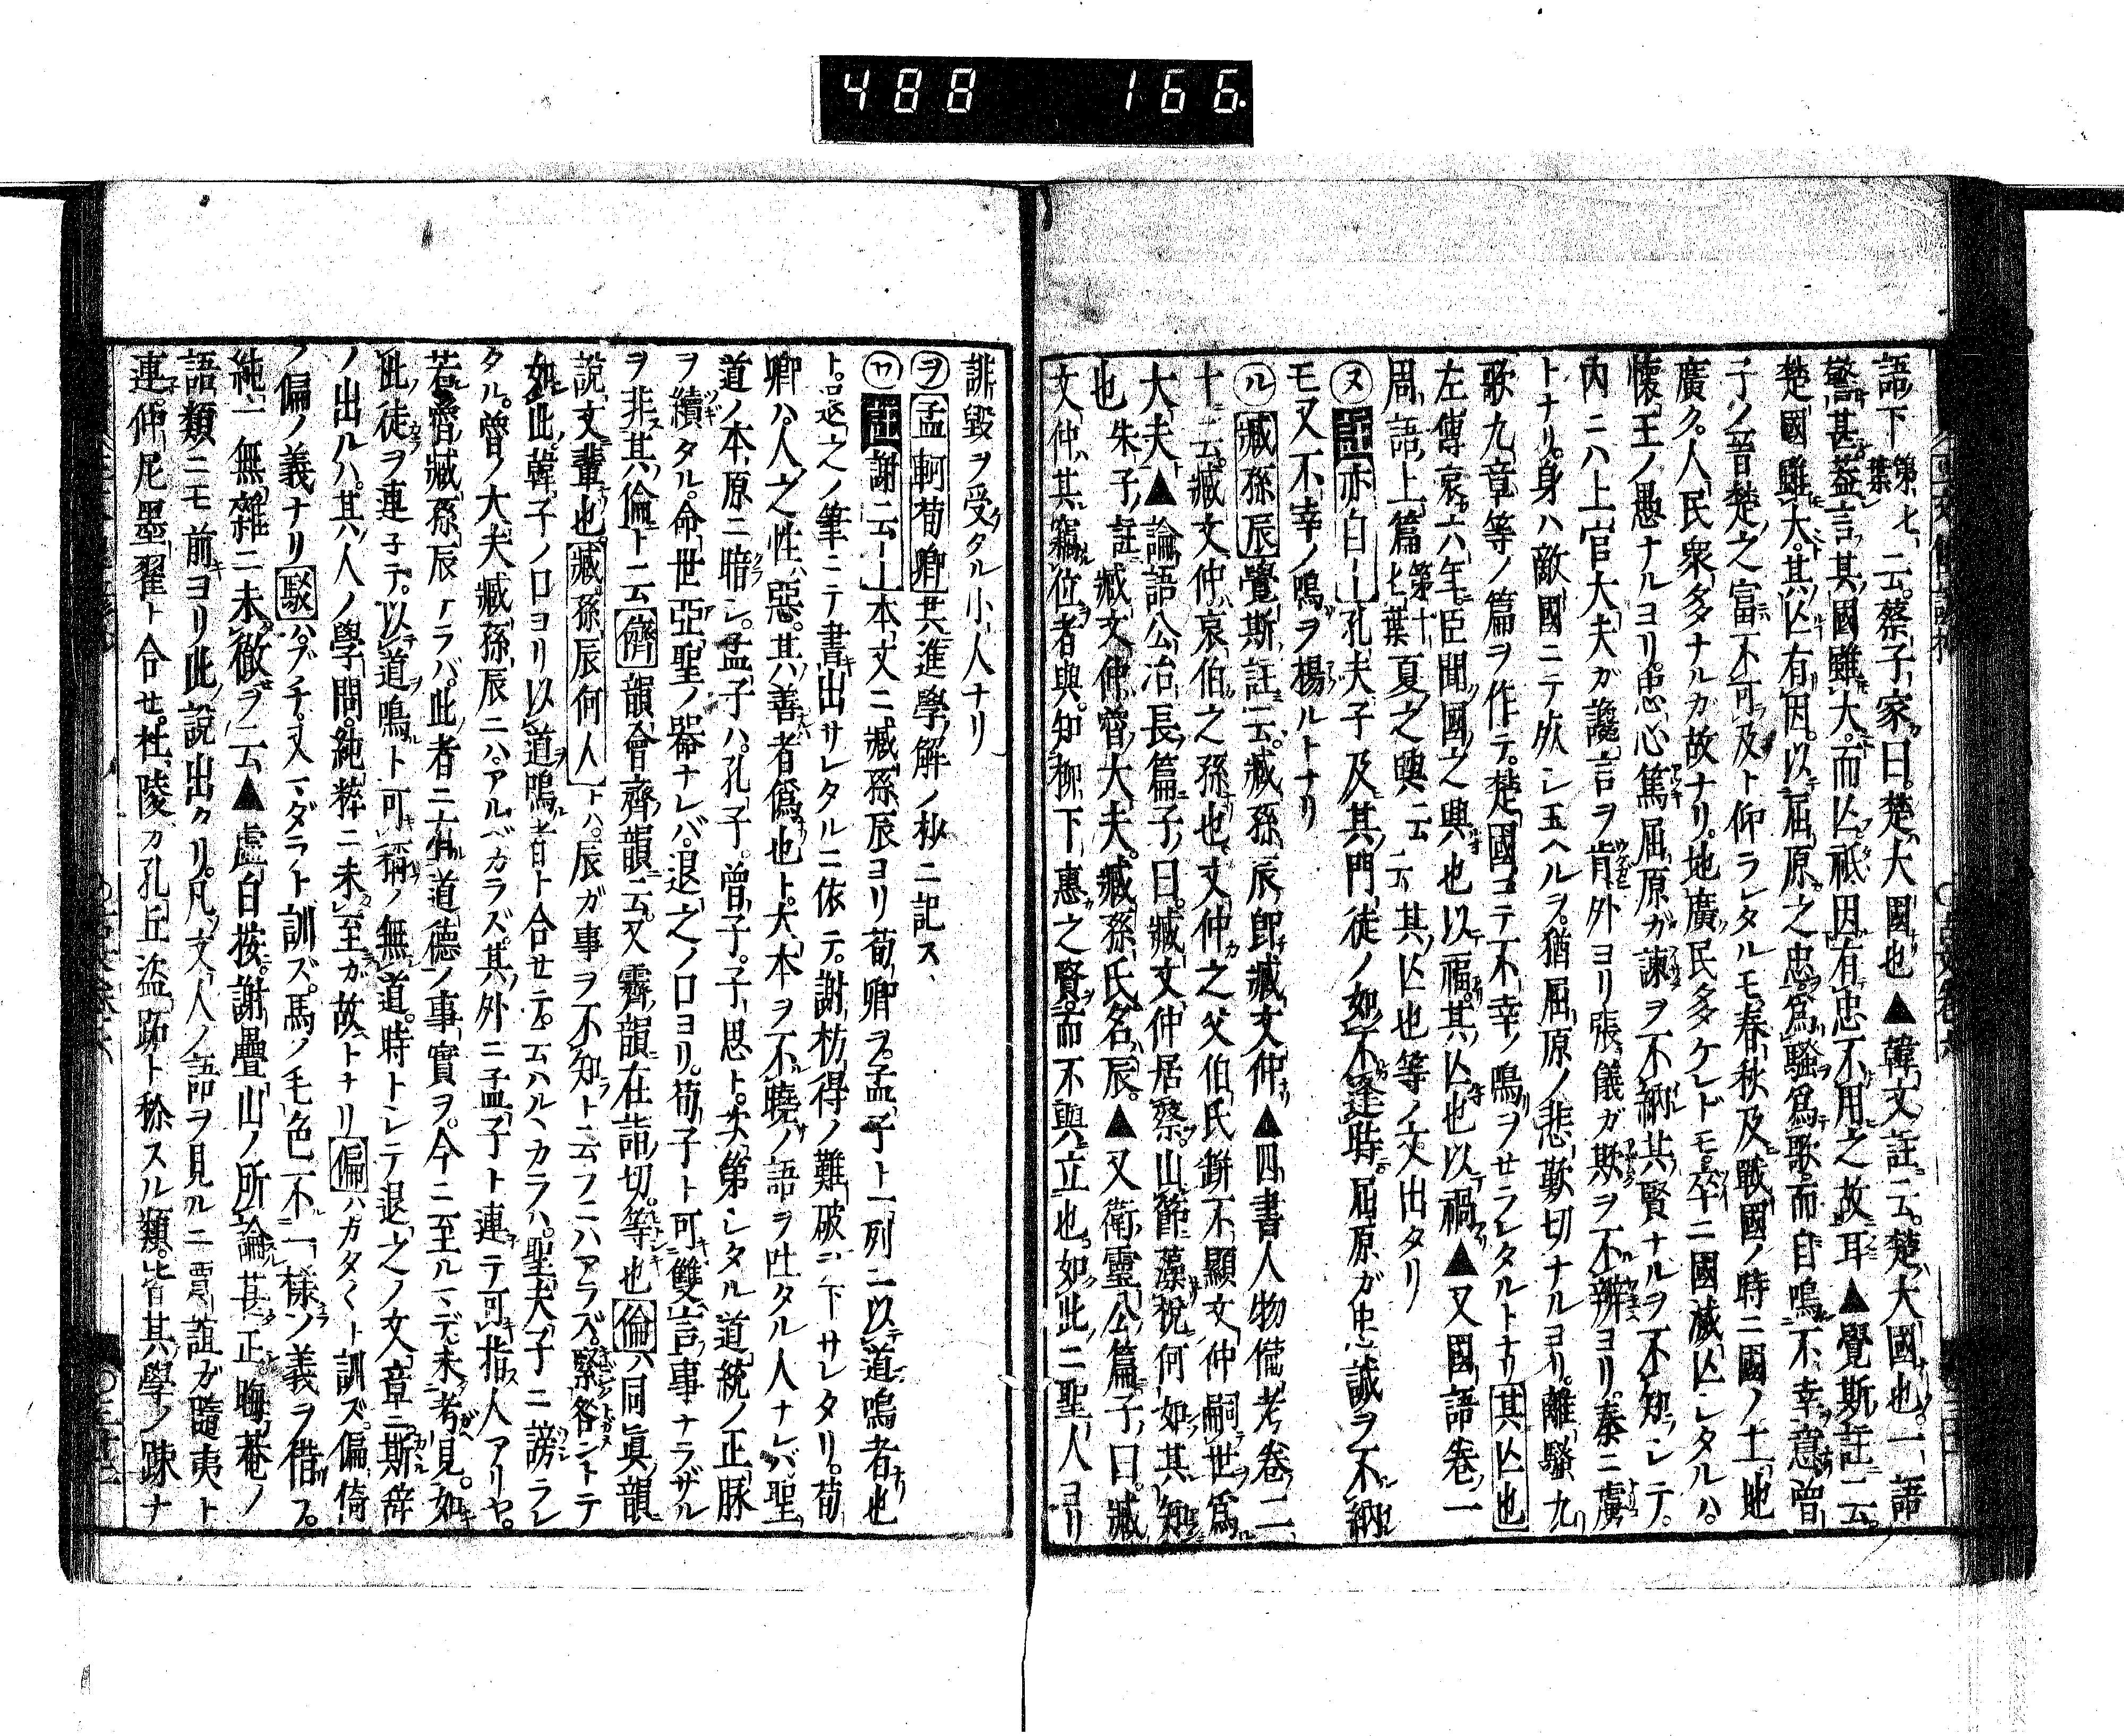 488 166
語下第七葉云蔡子家曰楚大國也▲韓文註云楚大國也一語
驚甚蓋言其國雖大而亾祗因有忠不用之故耳▲覺斯註云
楚國雖大其亾有因以屈原之忠爲騷爲歌而自鳴不幸意曽
子ノ晉楚之富不可及ト仰ラレタルモ春秋及戰國ノ時ニ國ノ土地
廣ク人民衆多ナルカ故ナリ地廣民多ケレドモ卒ニ國滅亾シタルハ
懷王ノ愚ナルヨリ忠心篤屈原ガ諫ヲ不納其賢ナルヲ不知シテ
内ニハ上官大夫ガ讒言ヲ肯外ヨリ張儀ガ欺ヲ不辨ヨリ秦ニ虜
トナリ身ハ敵國ニテ死シ玉ヘルヲ猶屈原ノ悲歎切ナルヨリ離騷九
歌九章等ノ篇ヲ作テ楚國ヨテ不幸ノ鳴ヲセラレタルトナリ其亾也
左傳哀六年臣聞國之興也以福其亾也以禍▲又國語卷一
周語上篇第十七葉夏之興云云其亾也等ノ文出タリ
ヌ亦自ー上孔夫子及其門徒ノ如不逢時屈原ガ忠誠ヲ不納
モ又不幸ノ鳴ヲ揚ルトナリ
ル臧孫辰覺斯註云臧孫辰即臧文仲▲四書人物備考卷二
十云臧文仲哀伯之孫也文仲之父伯氏缾不顯文仲嗣世爲
大夫▲論語公冶長篇子曰臧文仲居蔡山節藻梲何如其知
也朱子註臧文仲魯大夫臧孫氏名辰▲又衛靈公篇子曰臧
文仲其竊位者與知柳下惠之賢而不與立也如此ノ二聖人ヨリ
誹毀ヲ受タル小人ナリ
ヲ孟軻荀卿共進學解ノ抄ニ記ス
ワ謝云ー上本文ニ臧孫辰ヨリ荀卿ヲ孟子ト一列ニ以道鳴者也
ト退之ノ筆ニテ書出サレタルニ依テ謝枋得ノ難破ニ下サレタリ荀
卿ハ人之性惡其善者僞也ト大本ヲ不曉ノ語ヲ吐タル人ナレバ聖
道ノ本原ニ暗シ孟子ハ孔子曽子子思ト次第シタル道統ノ正脉
ヲ續タル命世亞聖ノ器ナレバ退之ノ口ヨリ荀子ト可雙言事ナラザル
ヲ非其倫ト云儕韻會齊韻云又霽韻在詣切等也倫ハ同眞韻
説文輩也臧孫辰何人トハ辰ガ事ヲ不知ト云フニハアラズ緊咎ントテ
如此韓子ノ口ヨリ以道鳴者ト合セテ云ハルヽカラハ聖夫子ニ謗ラレ
タル魯ノ大夫臧孫辰ニハアルベカラズ其外ニ孟子ト連テ可指人アリヤ
若齊臧孫辰ナラバ此者ニ於道德ノ事實ヲ今ニ至ルマデ未考見如
此徒ヲ連子テ以道鳴ト可稱ノ無道時トシテ退之ノ文章ニ斯辭
ノ出ルハ其人ノ學問純粹ニ未至ガ故トナリ偏ハガタクト訓ズ偏倚
ノ偏ノ義ナリ駁ハブチ又マダラト訓ズ馬ノ毛色不一樣ン義ヲ借フ
純一無雜ニ未徹ヲ云▲虚白按謝疊山ノ所論甚正晦菴ノ
語類ニモ前ヨリ此説出タリ凡文人ノ語ヲ見ルニ賈誼ガ隨夷ト
連仲尼墨翟ト合セ杜陵ガ孔丘盜跖ト稱スル類皆其學ノ疎ナ